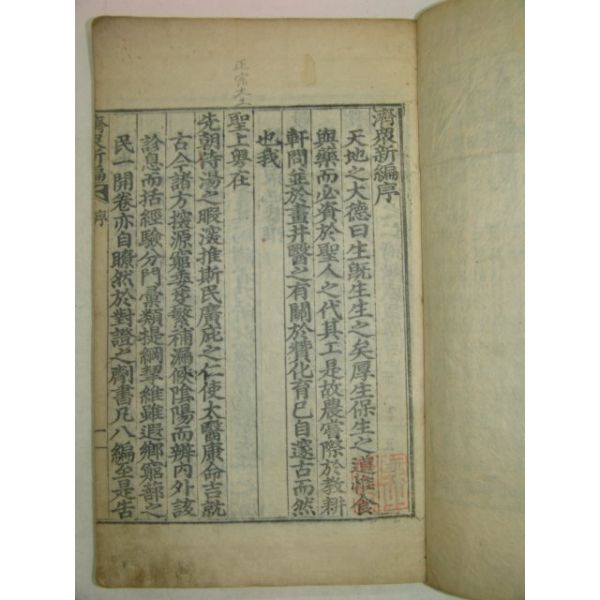 濟衆新編序
天地之大德曰生旣生生之矣厚生保生之道惟食
與藥而必資於聖人之代其工是故農嘗際於敎耕
軒問並於畫井醫之有關於贊化育已自邃古而然
也我
聖上粤在
先朝侍湯之暇深推斯民廣庇之仁使太醫康命吉就
古今諸方探源窮委芟繁補漏候陰陽而辨內外該
診息而括經驗分門彙類提綱挈維雖遐鄕窮蔀之
民一開卷亦自瞭然於對證之劑書凡八編至是告
濟衆新編 序 一
正宗大王